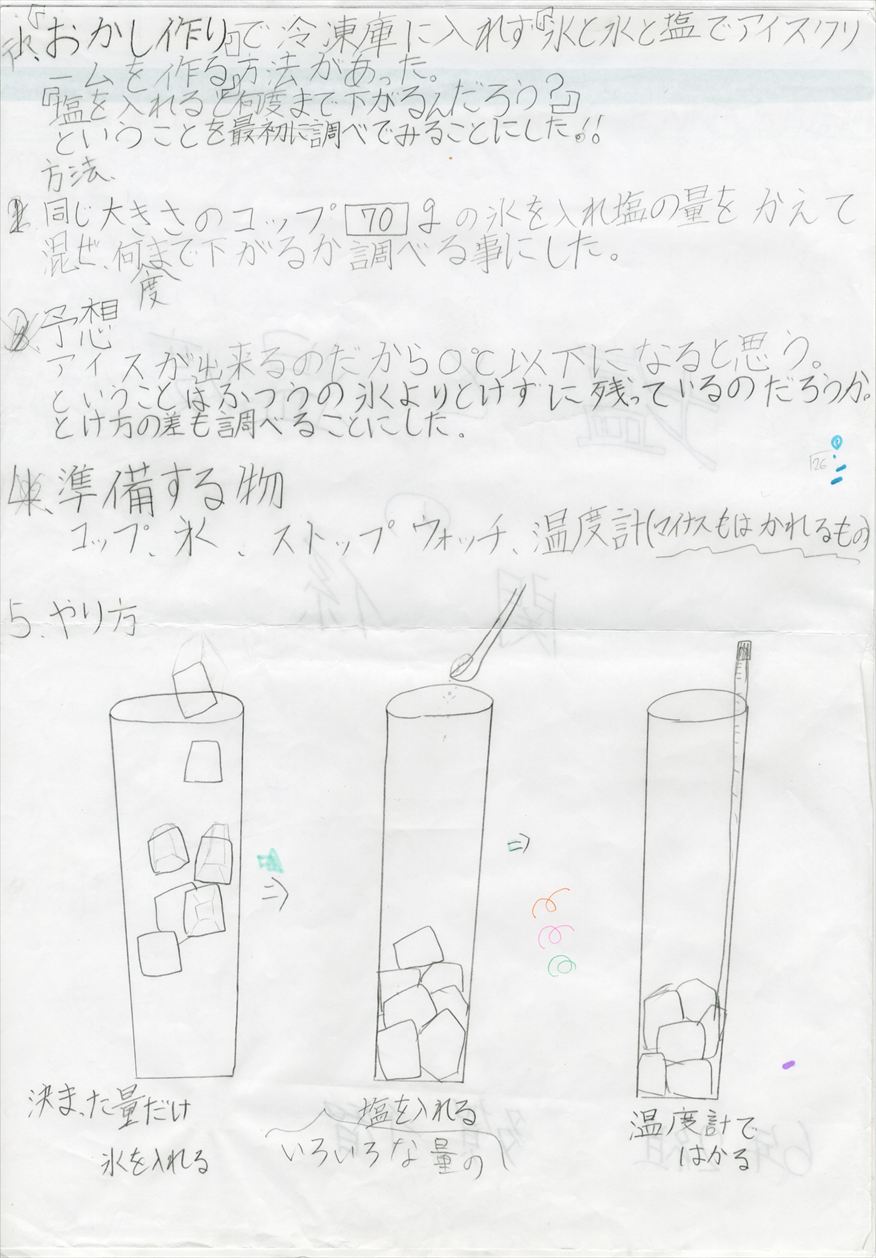 『おかし作り』で冷凍庫に入れず『氷と水と塩でアイスクリ
ームを作る』方法があった。
『塩を入れると何度まで下がるんだろう?』
ということを最初に調べてみることにした。!!
方法、
同じ大きさのコップ 70 gの氷を入れ塩の量をかえて
混ぜ、何度まで下がるか調べる事にした。
予想
アイスが出来るのだから0℃以下になると思う。
ということはふつうの氷よりとけずに残っているのだろうか。
とけ方の差も調べることにした。
4、準備する物
コップ、氷、ストップウォッチ、温度計(マイナスもはかれるもの)
5、やり方
決まった量だけ
氷を入れる
塩を入れる
いろいろな量の
温度計で
はかる